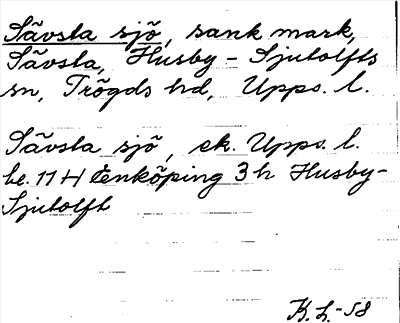 Sävsta sjö, sank mark,
Sävsta, Husby-Sjutolfts
sn, Trögds hd, Upps. l.
Sävsta sjö, ek. Upps. l.
be. 11 H Enköping 3 h Husby-
Sjutolft
K.L.-58